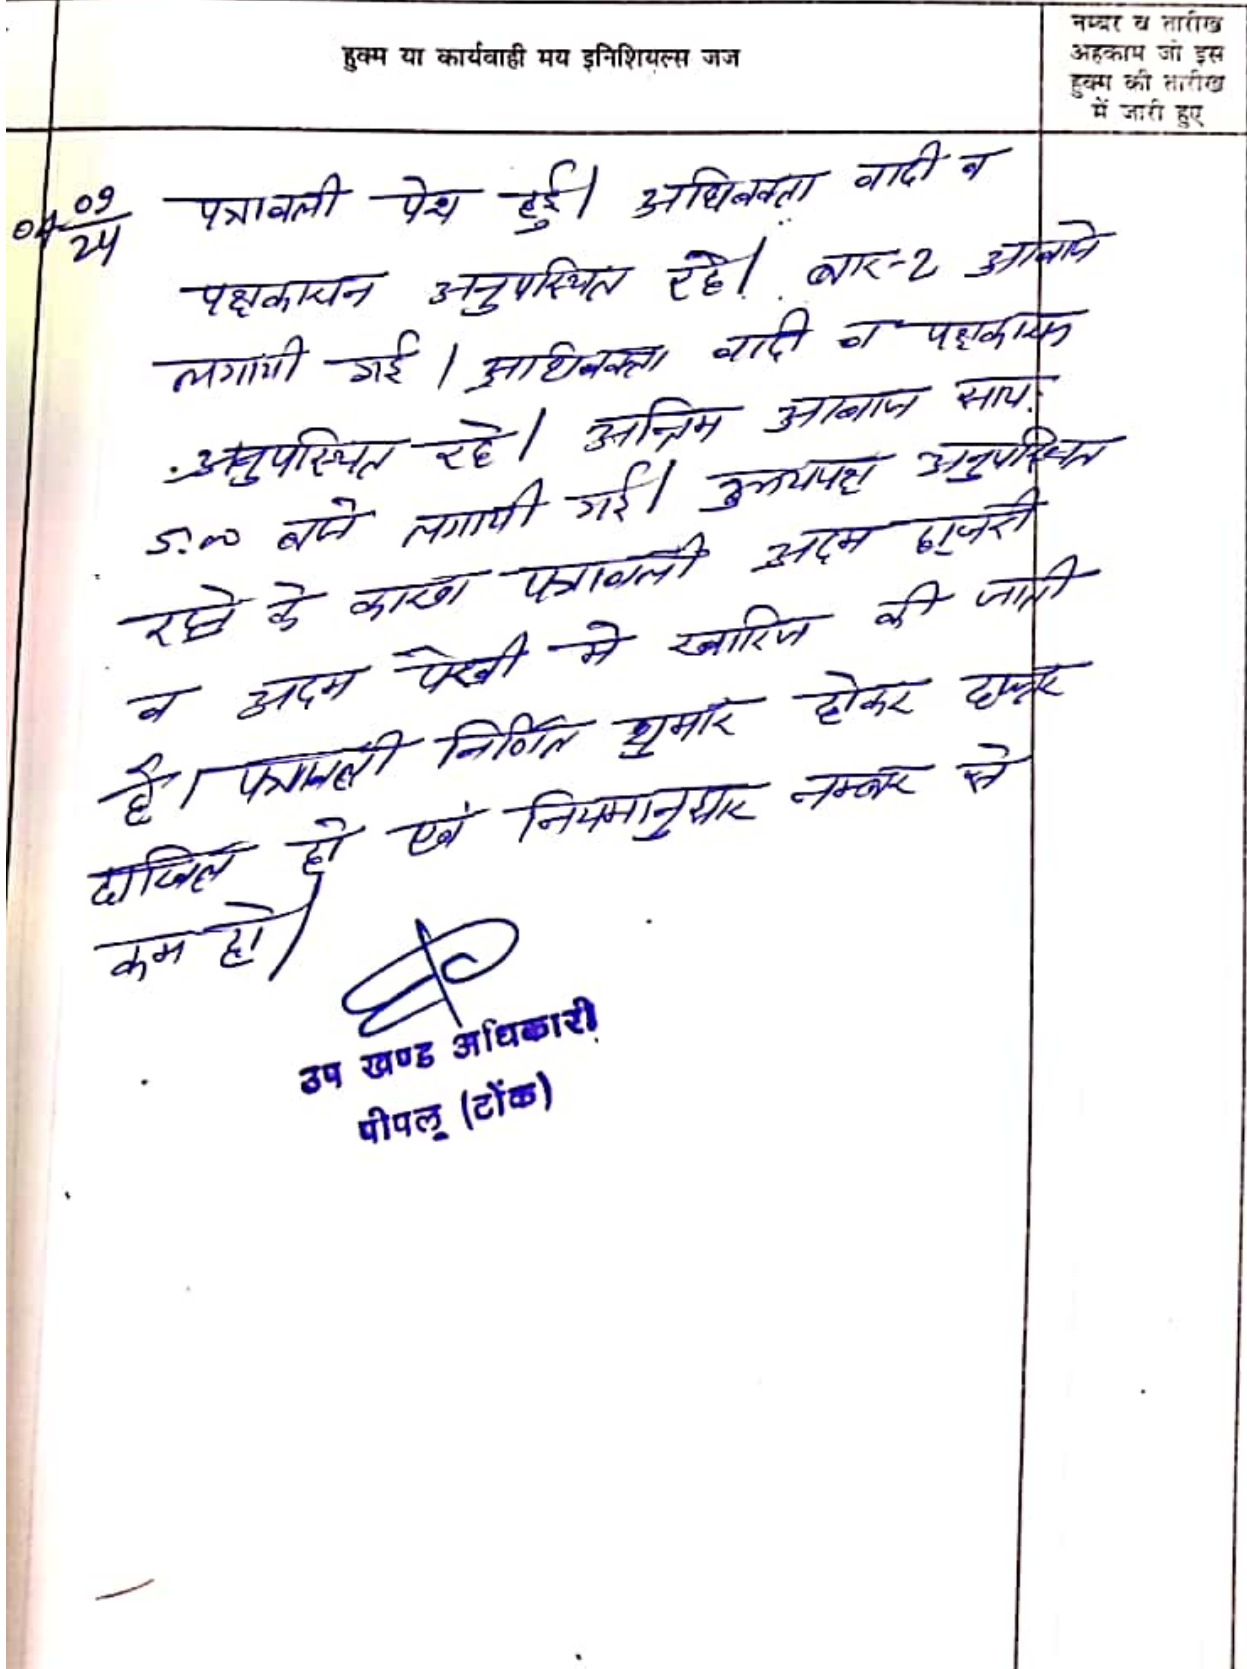 हुक्म या कार्यवाही मय इनिशियल्स जज
नम्बर व तारीख
अहकाम जो इस
हुक्म की तारीख
में जारी हुए
04 09/24
पत्रावली पेश हुई। अधिवक्ता वादी व
पक्षकारान अनुपस्थित रहे। बार-2 आवाजे
लगायी गई। अधिवक्ता वादी व पक्षकारान
अनुपस्थित रहे। अन्तिम आवाज सायं
5.00 बजे लगायी गई। उभयपक्ष अनुपस्थित
रहने के कारण पत्रावली अदम हाजरी
व अदम पेरवी मे खारिज की जाती
है। पत्रावली निर्णित शुमार होकर दफ्तर
दाखिल हो एवं नियमानुसार नम्बर से
कम हो।
उप खण्ड अधिकारी
पीपलू (टोंक)